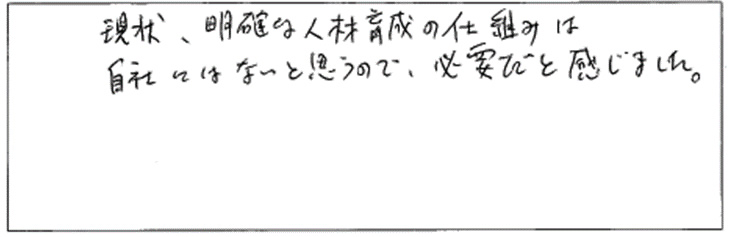 現状、明確な人材育成の仕組みは
自社にはないと思うので、必要だと感じました。